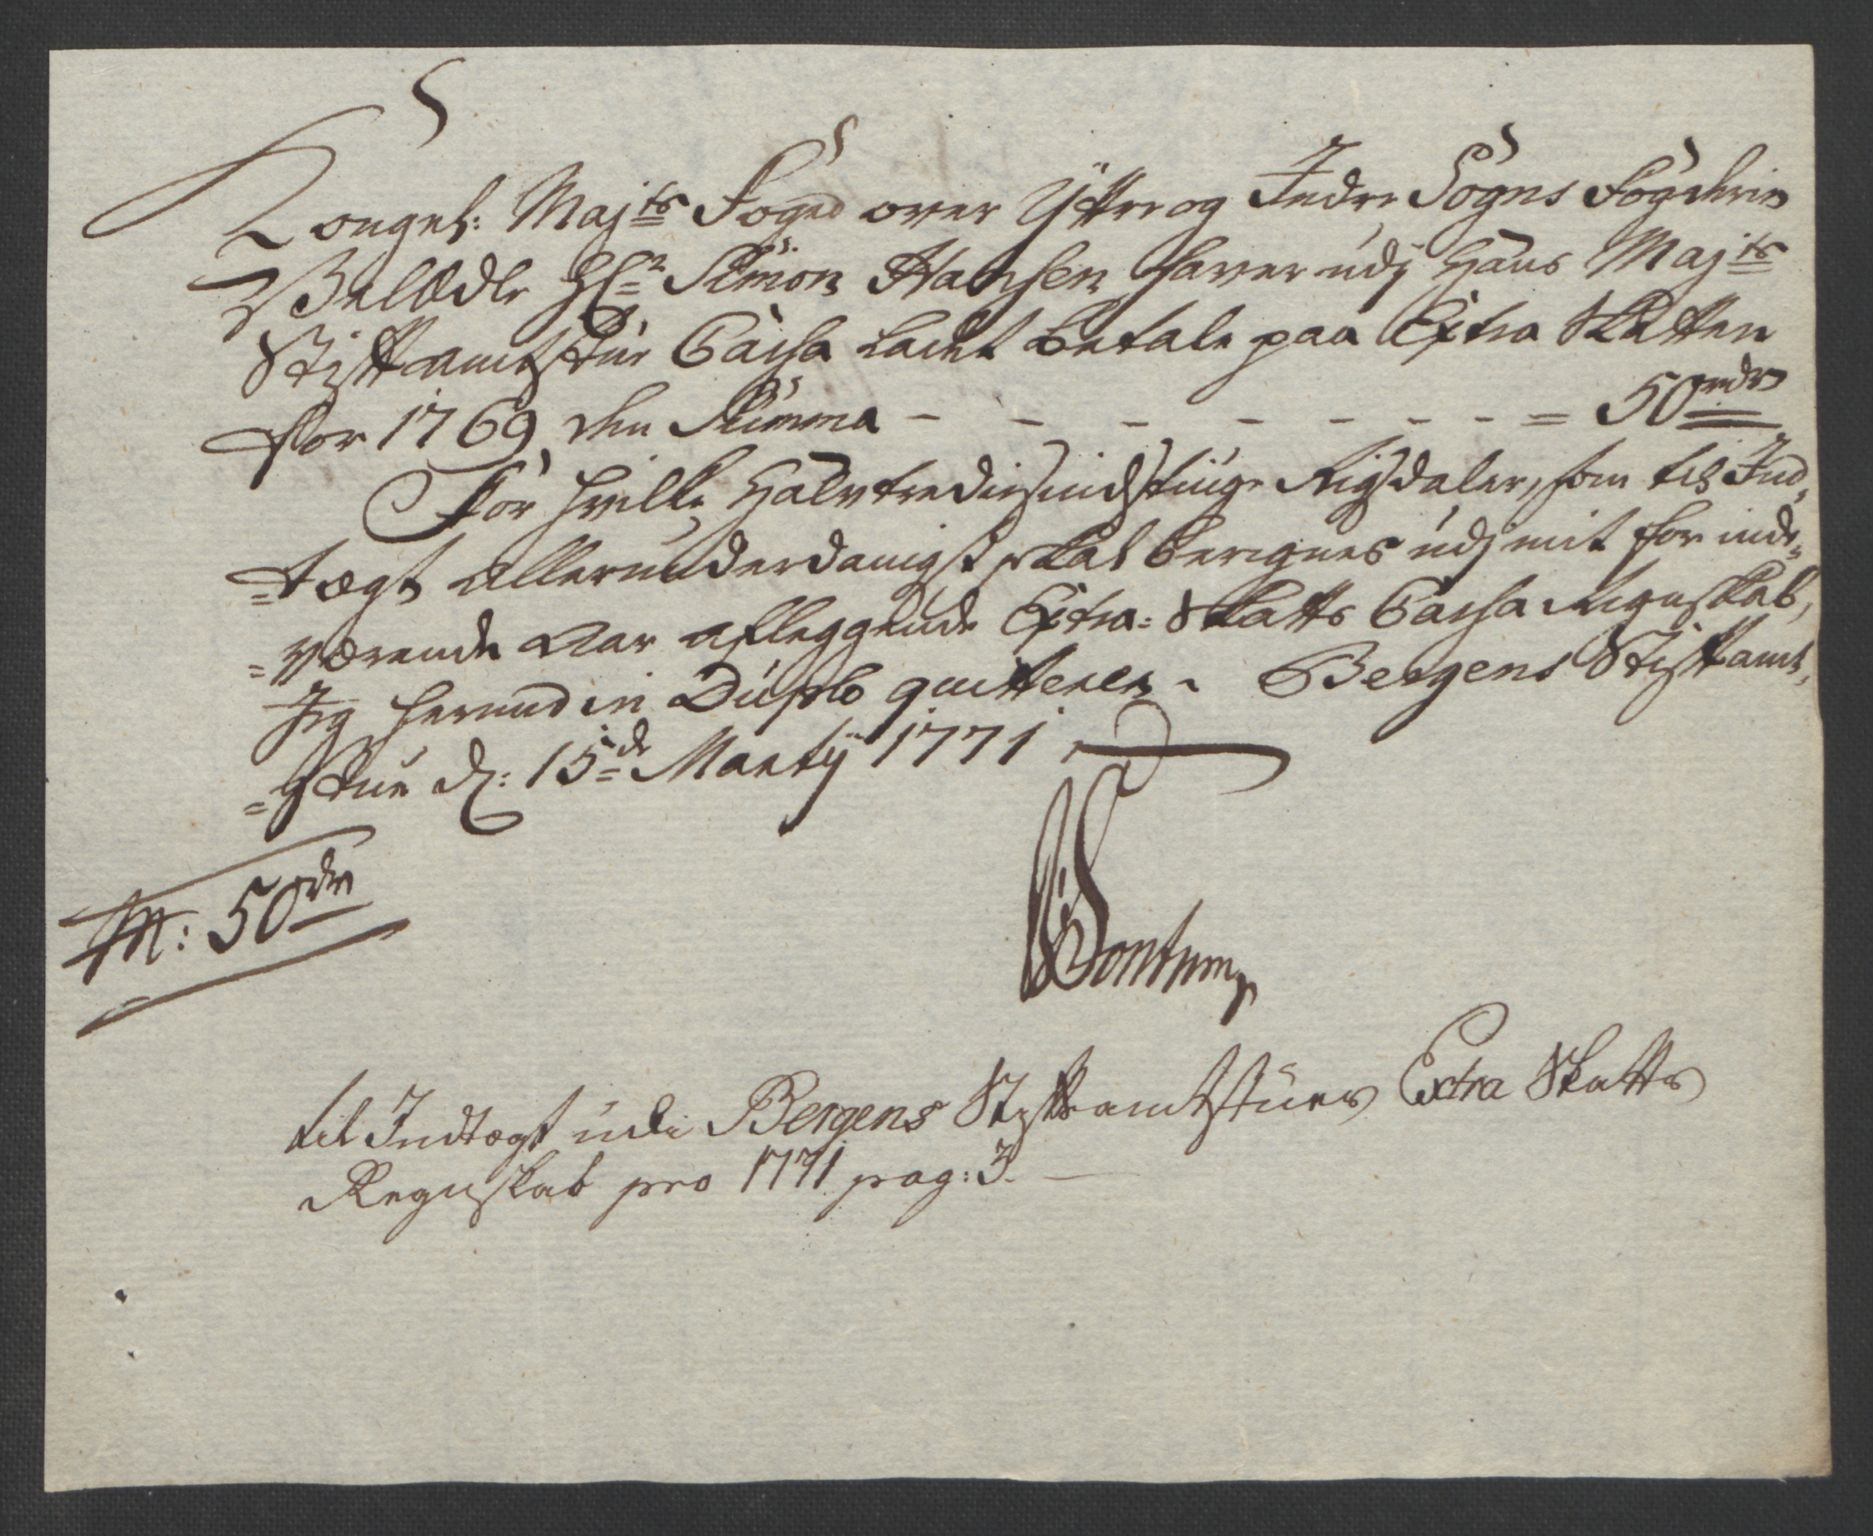 Kongel: Majts Foged over Yttre og Indre Sogns Fogderie
Velædle Hr Simon Hansen haver udj Hans Majts
Stiftamtstue Cassa ladet betale paa Extra Skatten
for 1769 den Summa - - - - - - - = 50rdr
For hvilke Halvtrediesindstiuge Rigsdaler, som til Ind,
=tægt allerunderdanigst skal beregnes udj mit for inde=
=værende Aar aflæggende Extra=Skatts Cassa Regnskab,
Jeg herved in Duplo quitterer. Bergens Stiftamt,
=Stue d: 15de Martij 1771
50rdr
Sontum
til Indtægt udi Bergens Stiftamtstues Extra Skatts
Regnskab pro 1771 pag: 3.